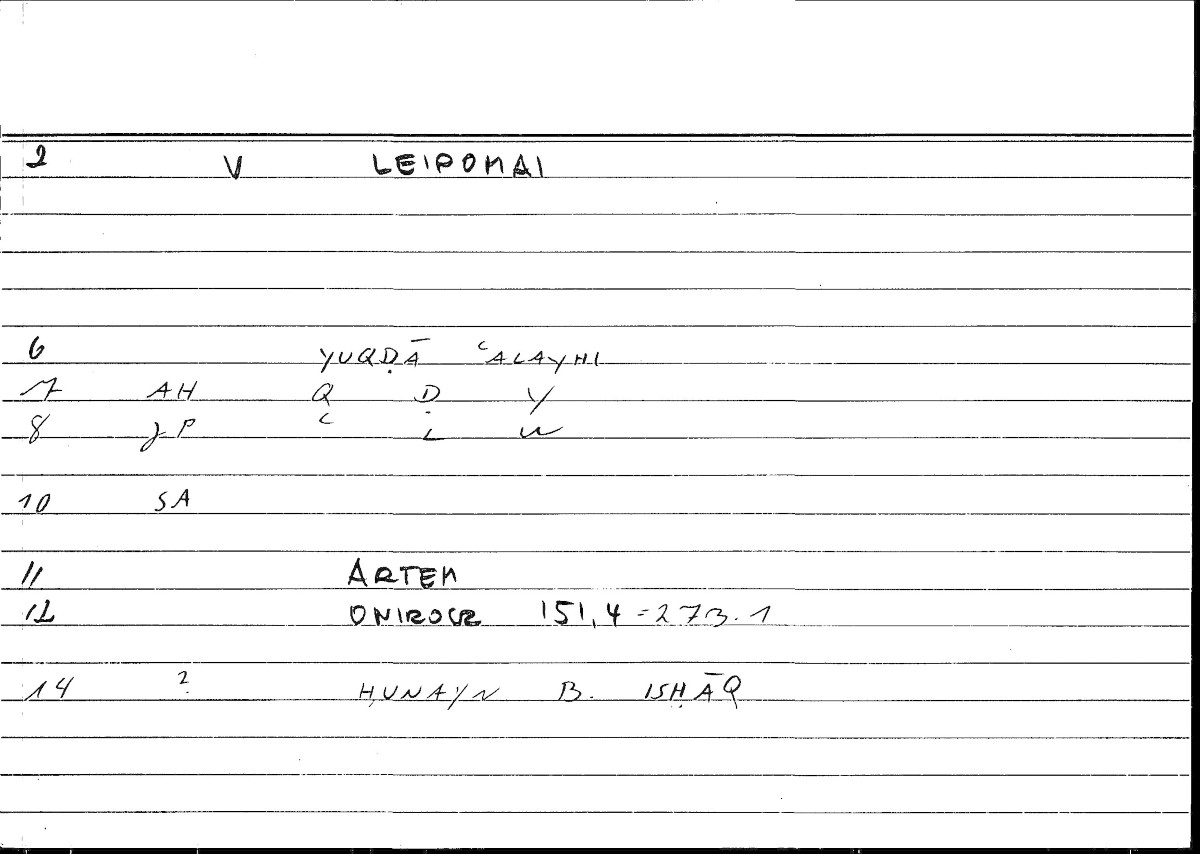 2 V LEIPOMAI
6 YUQḌĀ ʿALAYHI
7 AH Q Ḍ Y
8 JP ʿ L W
10 SA
11 ARTEM
12 ONIROCR 151,4 = 273.1
14 ? ḤUNAYN B. ISḤĀQ